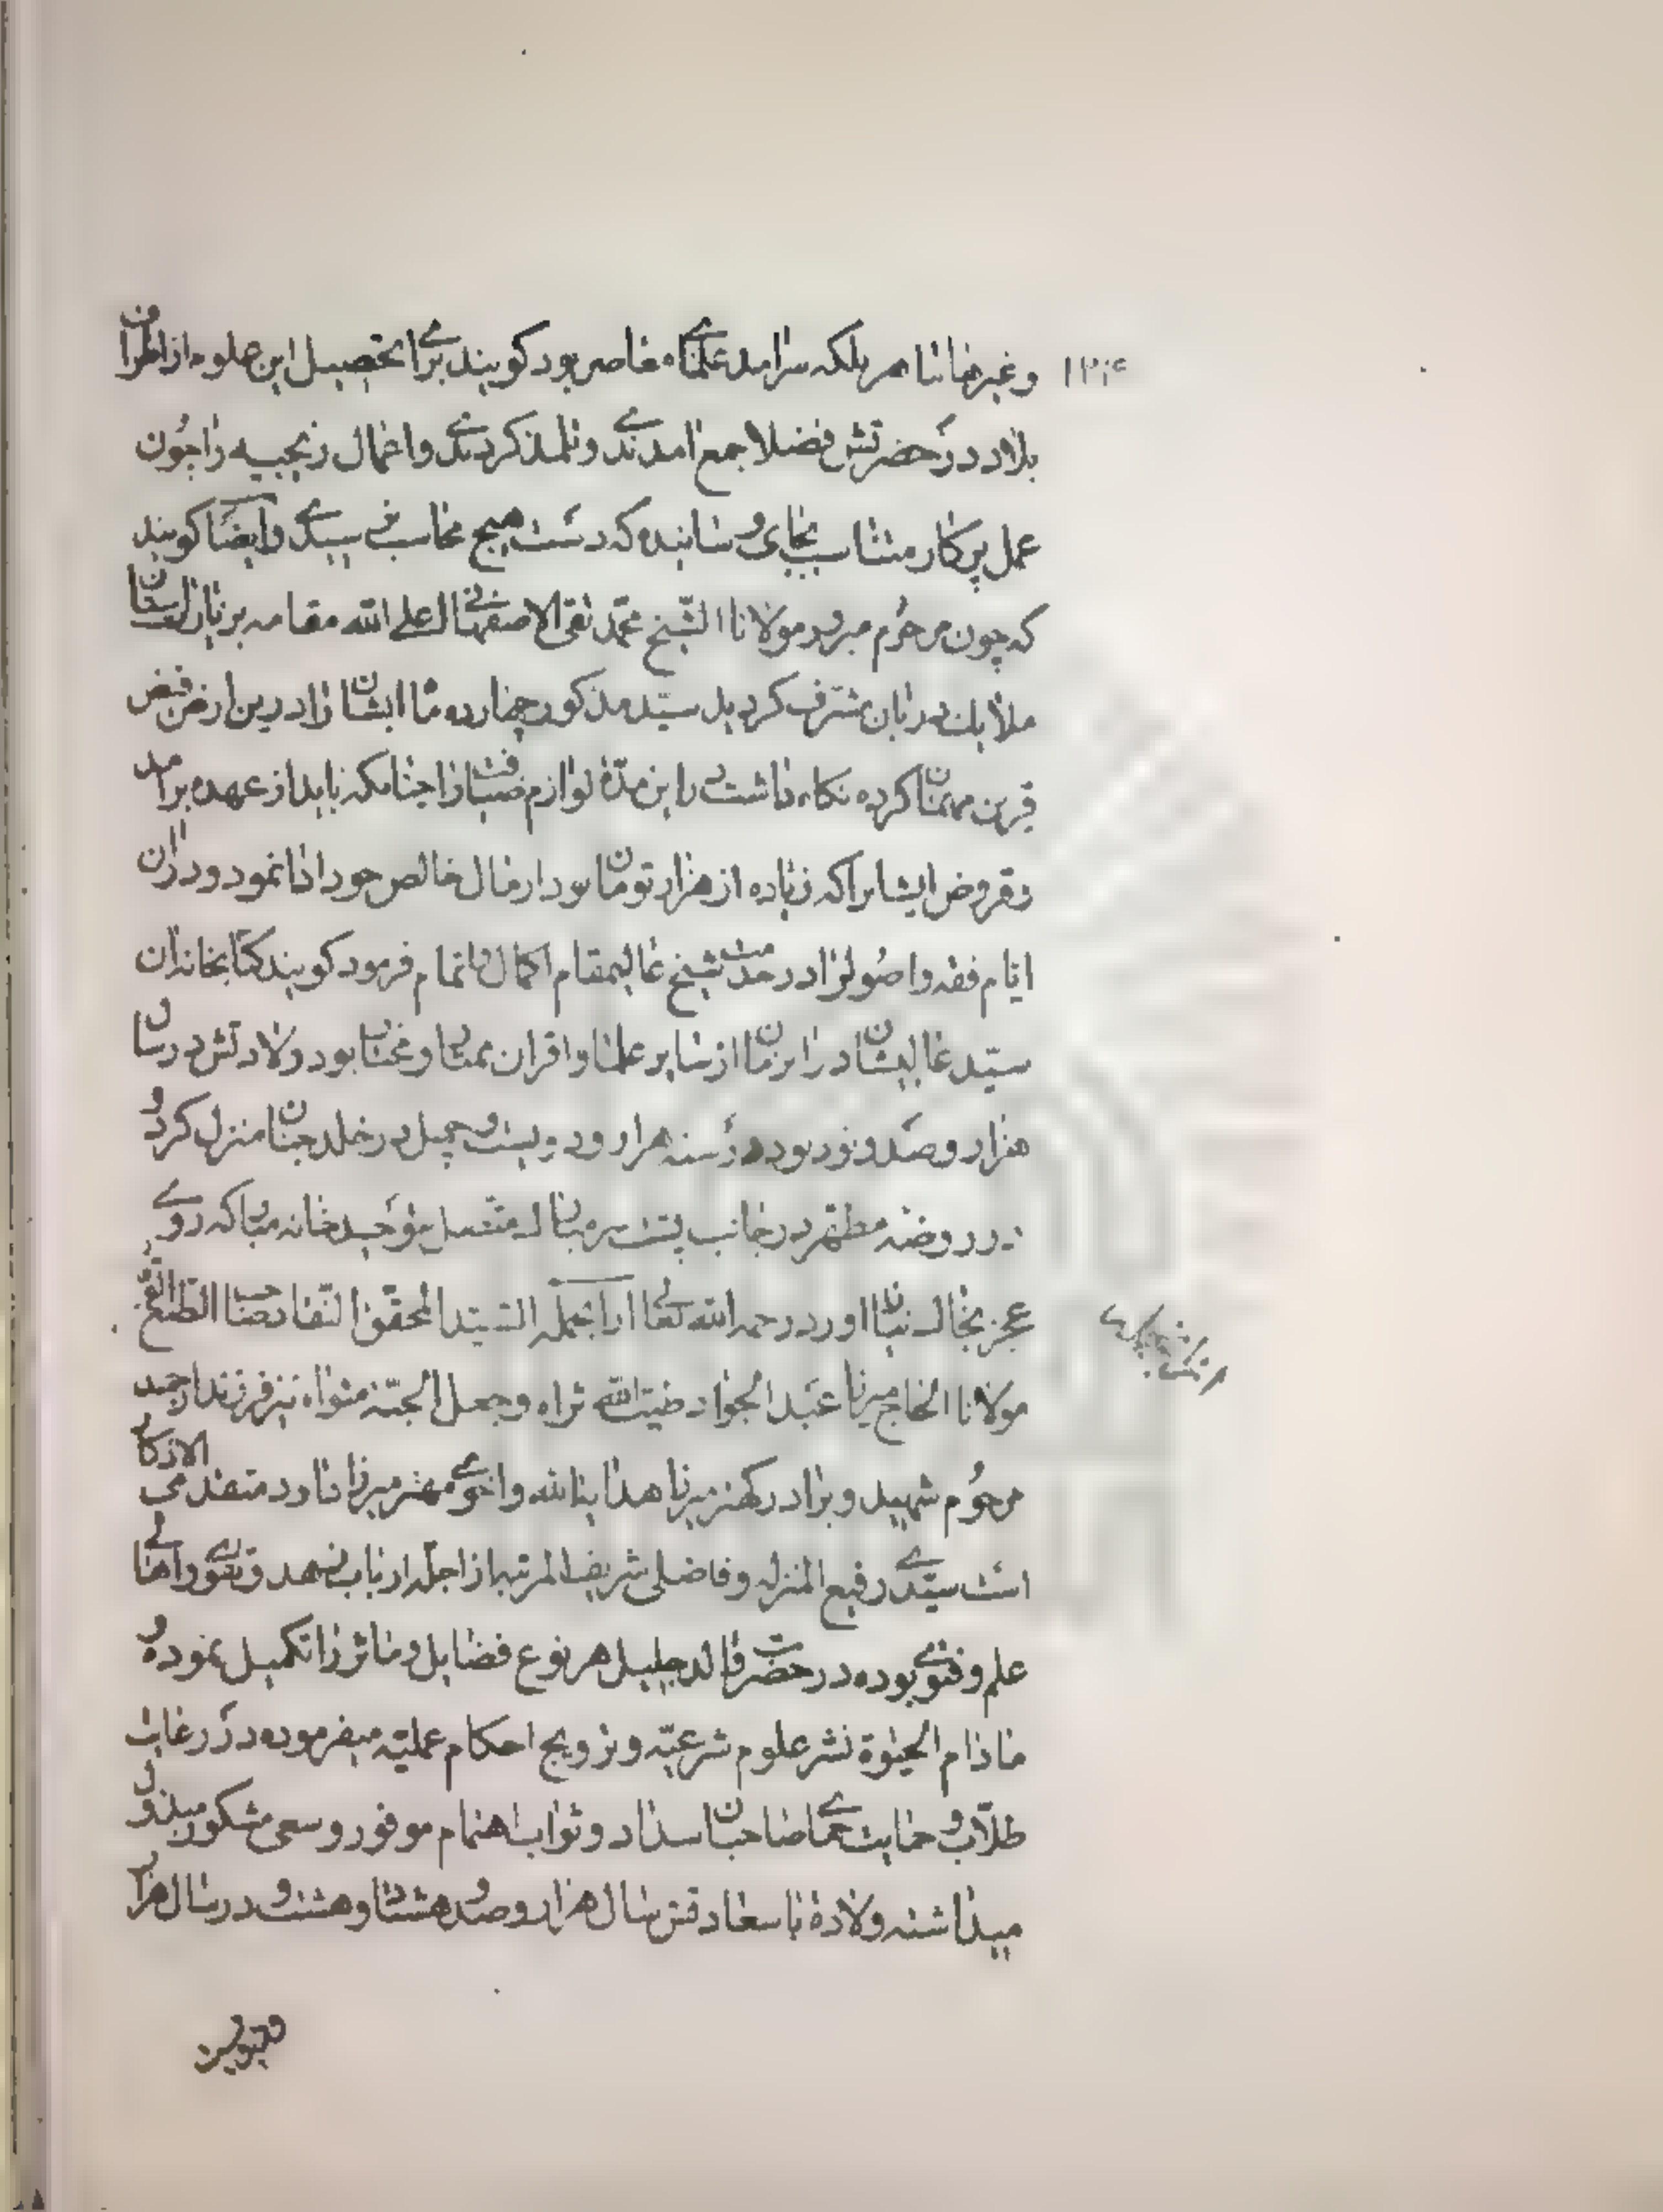 وغیرها ماهر بلکه سرامد علمای معاصر بود کویند برای تحصیل این علوم از اطراف
بلاد در حضرتش فضلا جمع امدندی و تلمذ کردندی و اعمال زیجیه را چون
عمل پرکار متشابه بجای رسانیده که دست هیچ محاسب وایضا کویند
که چون مرحوم مبرور مولانا الشیخ محمد تقی الاصفهانی اعلی الله مقامه بزیارت استان
ملایك دربان مشرف کردید سید مذکور چهارده ماه ایشان را درین ارض فیض
قرین مهمان کرده نکاه داشت و این مدة لوازم ضیافت را چنانکه باید از عهده برامد
و قروض ایشانرا که زیاده از هزار تومان بود از مال خالص خود ادا نمود و در ان
ایام فقه و اصول را در خدمت شیخ عالیمقام اکمال و اتمام فرمود کویند کتابخانه ان
سید عالیشان در این زمان از سایر علما و اقران ممتاز و بود ولادتش در سال
هزار و صد و نود بود در سنه هزار و دویست و چهل در خلد جنان منزل کرد و
در روضه مطهر در جانب پشت سر مبارك متصل بتوحید خانه مبارکه روی
عجز بخاك نیاز اورد رحمه الله تعالی از انجمله السید المحقق النقاد صاحب الطبع
مولانا الحاج میرزا عبد الجواد طیب الله ثراه وجعل الجنة مثواه نیز فرزند ارجمند
مرحوم شهید و برادر کهتر میرزا هدایت الله و اخوی مهتر میرزا داود متقدمی الذکر
است سیدی رفیع المنزله و فاضلی شریف المرتبه از اجله ارباب زهد و تقوی و اهالی
علم و فتوی بوده در حضرت والد جلیل هر نوع فضایل و ماثر را تکمیل نموده و
مادام الحیوة نشر علوم شرعیه و ترویج احکام عملیه میفرموده در رعایت
طلاب و حمایت صاحبان سداد و ثواب اهتمام موفور و سعی مشکور مبذول
میداشته ولادة با سعادتش سال هزار و صد و هشتاد و هشت و در سال هزار